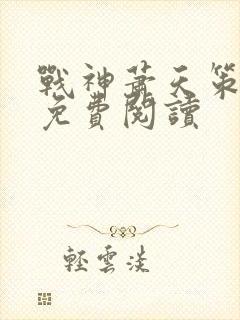 戰神蕭天策
免費閱讀
輕雲淡